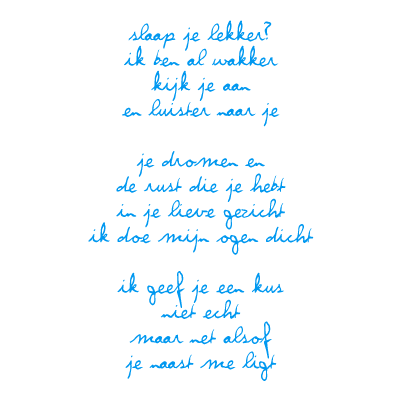 slaap je lekker?
ik ben al wakker
kijk je aan
en luister naar je
je dromen en
de rust die je hebt
in je lieve gezicht
ik doe mijn ogen dicht
ik geef je een kus
niet echt
maar net alsof
je naast me ligt